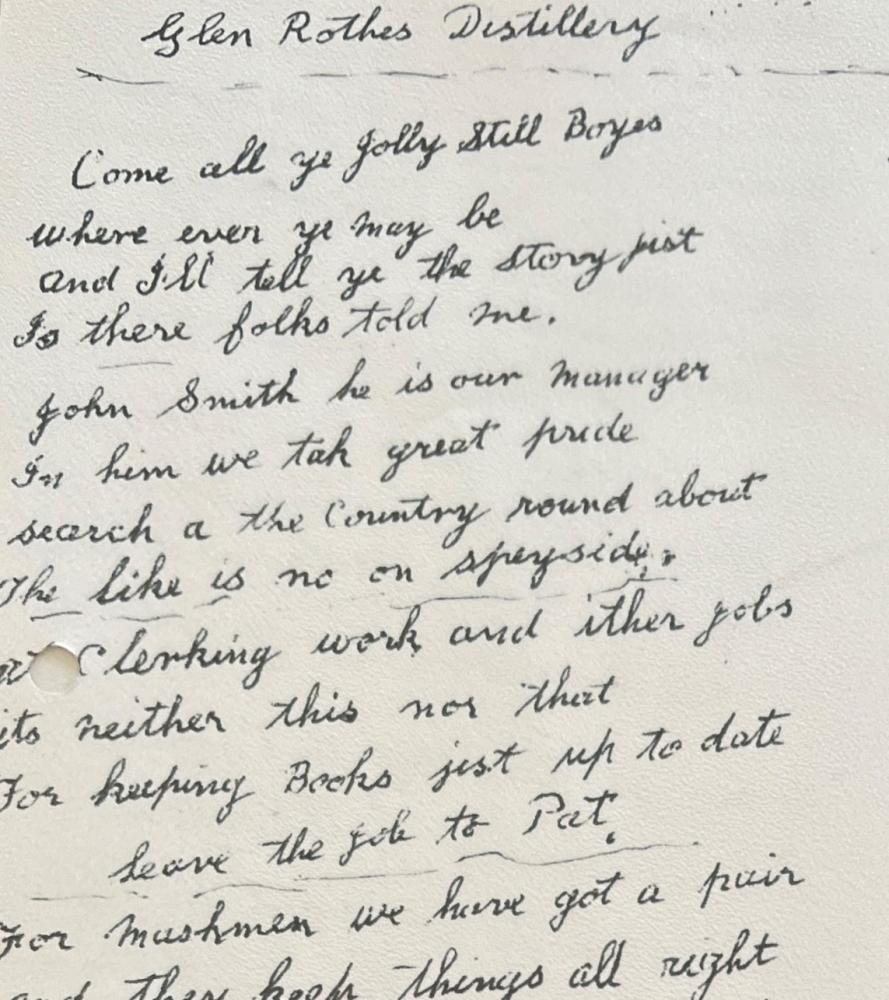 Glen Rothes Distillery
Come all ye Jolly Still Boyes
where ever ye may be
and I'll tell ye the story jist
As there folks told me.
John Smith he is our manager
In him we tak great pride
search a the Country round about
The like is no on speyside.
at Clerking work and ither jobs
its neither this nor that
For keeping Books jist up to date
Leave the job to Pat.
For mashmen we have got a pair
and they keep things all right